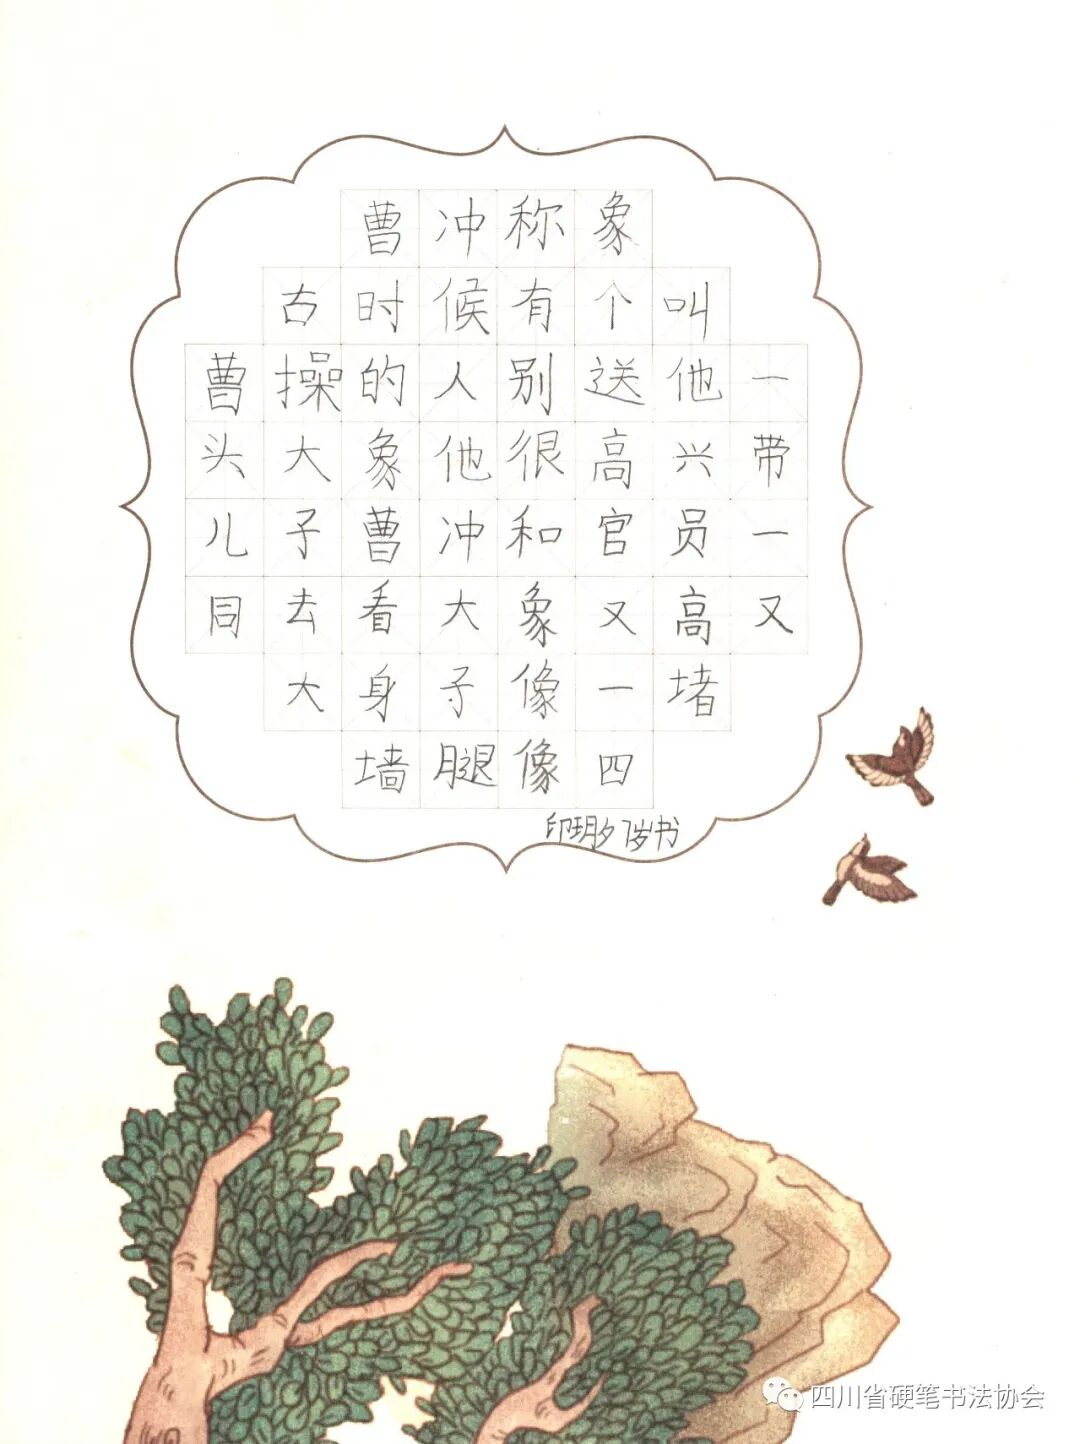 曹冲称象
古时候有个叫
曹操的人别送他一
头大象他很高兴带
儿子曹冲和官员一
同去看大象又高又
大身子像一堵
墙腿像四
印玥夕7岁书
四川省硬笔书法协会